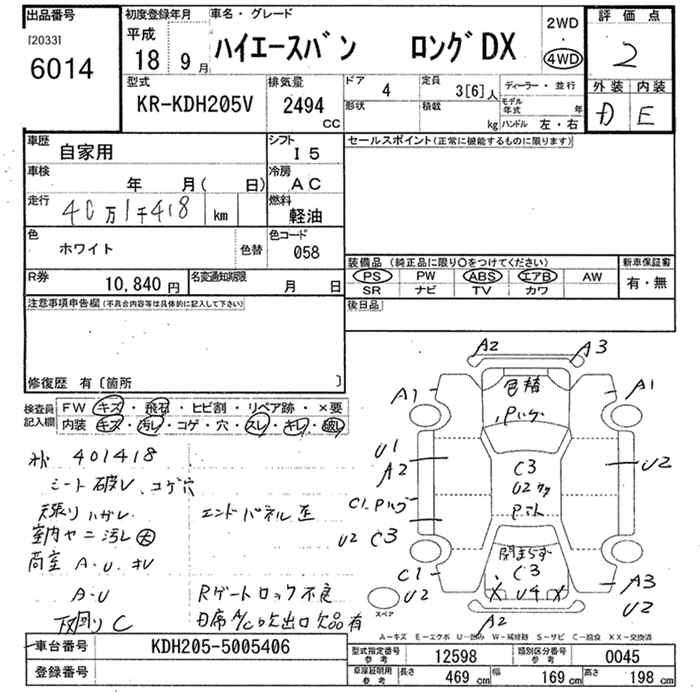 出品番号
[2033]
6014
初度登録年月
平成
18 9月
車名・グレード
ハイエースバン ロングDX
2WD
・
4WD
評価点
2
外装 内装
D E
型式
KR-KDH205V
排気量
2494
CC
ドア
4
定員
3[6]人
形状
積載
kg
ディーラー・並行
モデル年式 年
ハンドル 左・右
車歴
自家用
シフト
I5
車検
年 月( 日)
冷房
AC
走行
40万1千418 km
燃料
軽油
色
ホワイト
色替
色コード
058
R券
10,840 円
名変通知期限
月 日
セールスポイント(正常に機能するものに限ります)
装備品 (純正品に限り○をつけてください)
PS PW ABS エアB AW
SR ナビ TV カワ
新車保証書
有・無
後日品
注意事項申告欄(不具合内容等は具体的に記入して下さい)
修復歴 有〔箇所 〕
検査員記入欄
FW キズ・飛石・ヒビ割・リペア跡・×要
内装 キズ・汚レ・コゲ・穴・スレ・キレ・破レ
401418
シート破レ、コゲ穴
天張りハガレ
室内ヤニ汚レ大
エンドパネル歪
荷室 A・U・サビ
A・U
下回りC
Rゲートロック不良
A/C吹出口欠品有
A2 A3
色替
Pハゲ
A1 A1
U1
A2
C3
U2
C1.Pハゲ
U2 C3
開まらず
C3
U4
C1
U2
スペア
A3
U2
A2
A-キズ E-エクボ U-凹み W-補修跡 S-サビ C-腐食 XX-交換済
車台番号
KDH205-5005406
登録番号
型式指定番号 参考
12598
類別区分番号 参考
0045
車庫証明用 参考
長さ 469 cm 幅 169 cm 高さ 198 cm